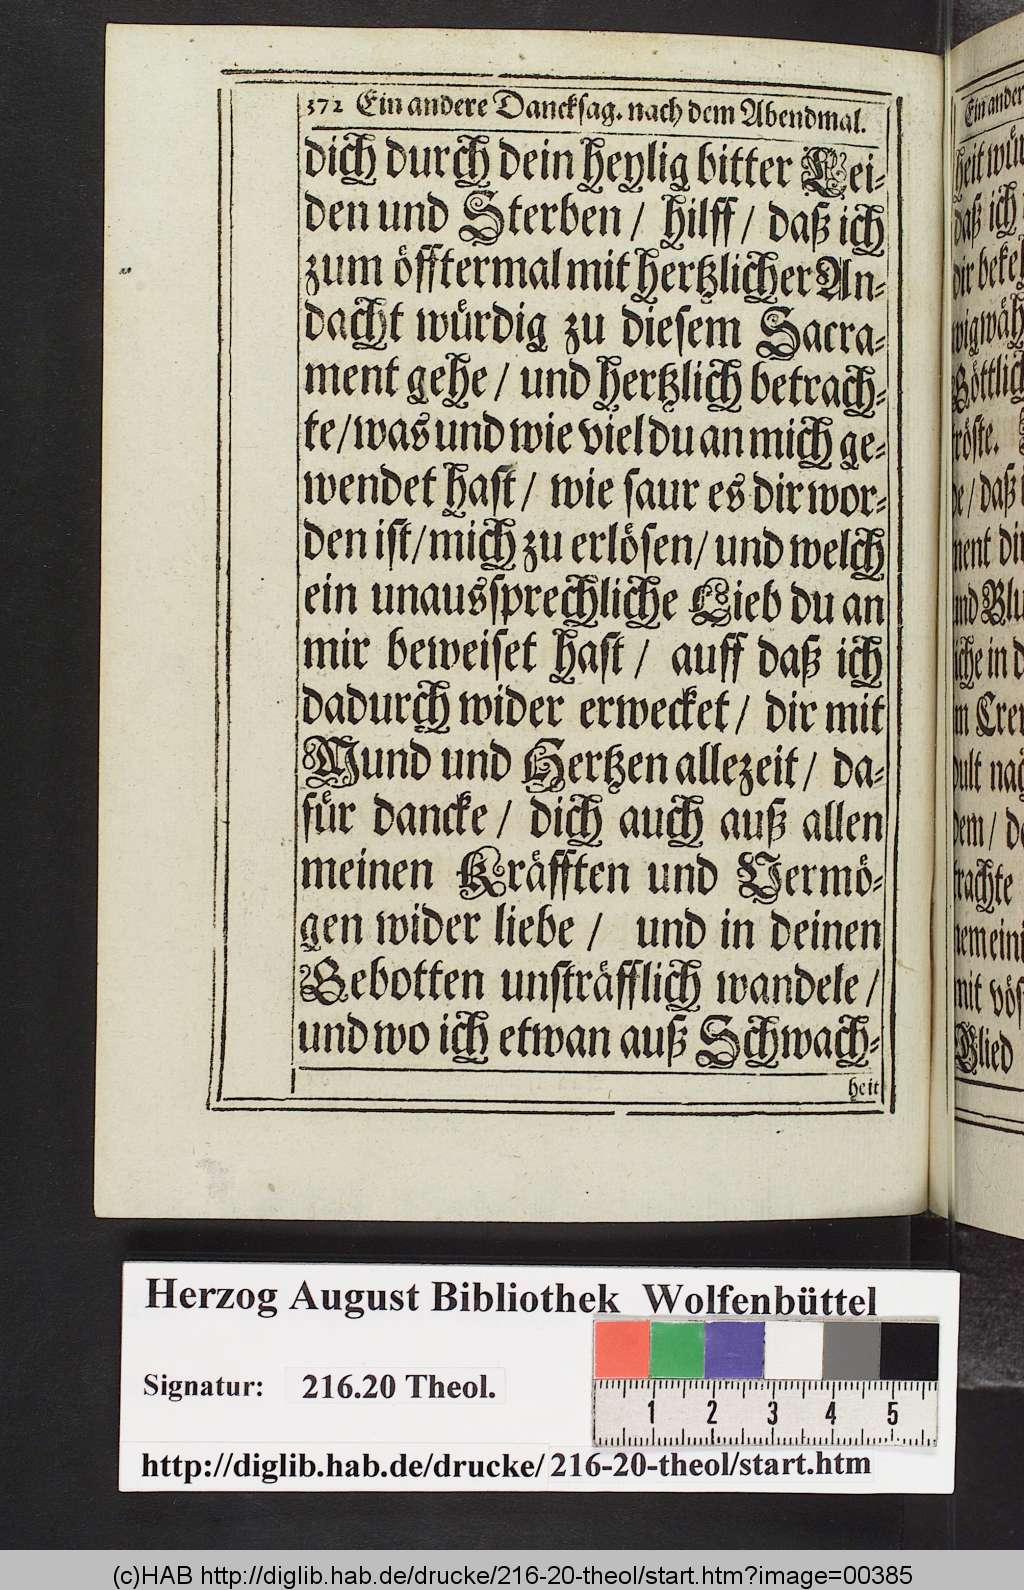 372 Ein andere Dancksag. nach dem Abendmal.
dich durch dein heylig bitter Lei-
den und Sterben / hilff / daß ich
zum öfftermal mit hertzlicher An-
dacht würdig zu diesem Sacra-
ment gehe / und hertzlich betrach-
te / was und wie viel du an mich ge-
wendet hast / wie saur es dir wor-
den ist / mich zu erlösen / und welch
ein unaussprechliche Lieb du an
mir beweiset hast / auff daß ich
dadurch wider erwecket / dir mit
Mund und Hertzen allezeit / da-
für dancke / dich auch auß allen
meinen Kräfften und Vermö-
gen wider liebe / und in deinen
Gebotten unsträfflich wandele /
und wo ich etwan auß Schwach-
heit
Ein ander
heit wü
daß ich
dir bekeh
wig wäh
Göttlich
tröste.
de / daß i
ment di
und Blu
liche in d
m Creu
dult nac
dem / d
trachte
mit vös
Glied
Herzog August Bibliothek Wolfenbüttel
Signatur: 216.20 Theol.
1 2 3 4 5
http://diglib.hab.de/drucke/216-20-theol/start.htm
(c)HAB http://diglib.hab.de/drucke/216-20-theol/start.htm?image=00385